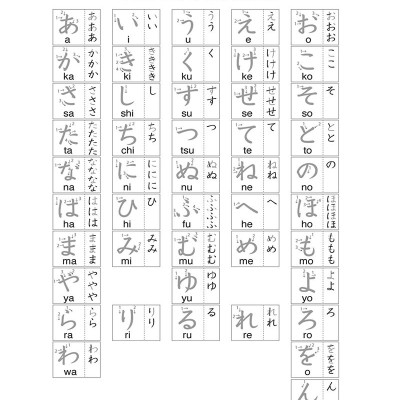 あ あああ い いい う うう え ええ お おおお
a i u e o
か かかか き きききき く く け けけけ こ ここ
ka ki ku ke ko
さ さささ し し す すす せ せせせ そ そ
sa shi su se so
た たたたた ち ちち つ つ て て と とと
ta chi tsu te to
な なななな に ににに ぬ ぬぬ ね ねね の の
na ni nu ne no
は ははは ひ ひ ふ ふふふふ へ へ ほ ほほほほ
ha hi fu he ho
ま ままま み みみ む むむむ め めめ も ももも
ma mi mu me mo
や ややや ゆ ゆゆ よ よよ
ya yu yo
ら らら り りり る る れ れれ ろ ろ
ra ri ru re ro
わ わわ を ををを
wa o
ん ん